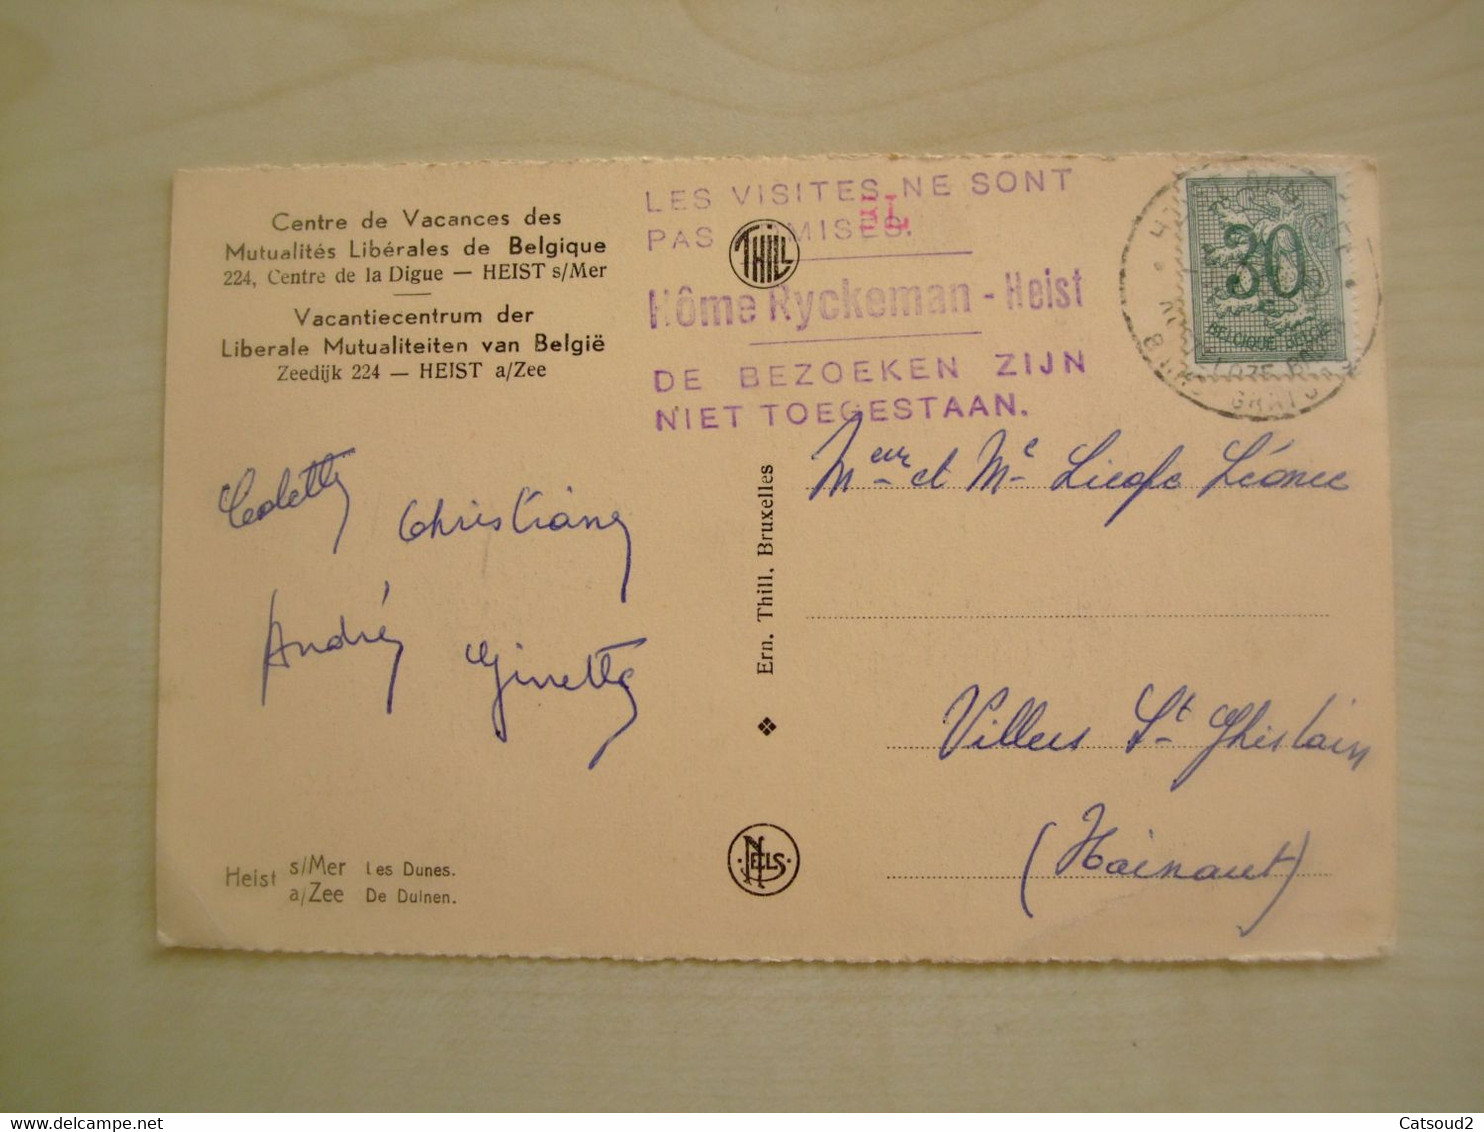 Centre de Vacances des
Mutualités Libérales de Belgique
224, Centre de la Digue — HEIST s/Mer
Vacantiecentrum der
Liberale Mutualiteiten van België
Zeedijk 224 — HEIST a/Zee
LES VISITES NE SONT
PAS MISES.
THILL
Hôme Ryckeman - Heist
DE BEZOEKEN ZIJN
NIET TOEGESTAAN.
30
BELGIQUE BELGIE
Christiane
André
Ginette
Ern. Thill, Bruxelles
Meur et Me Léonce
Villers St Ghislain
(Hainaut)
Heist s/Mer Les Dunes.
a/Zee De Duinen.
NELS
Catsoud2